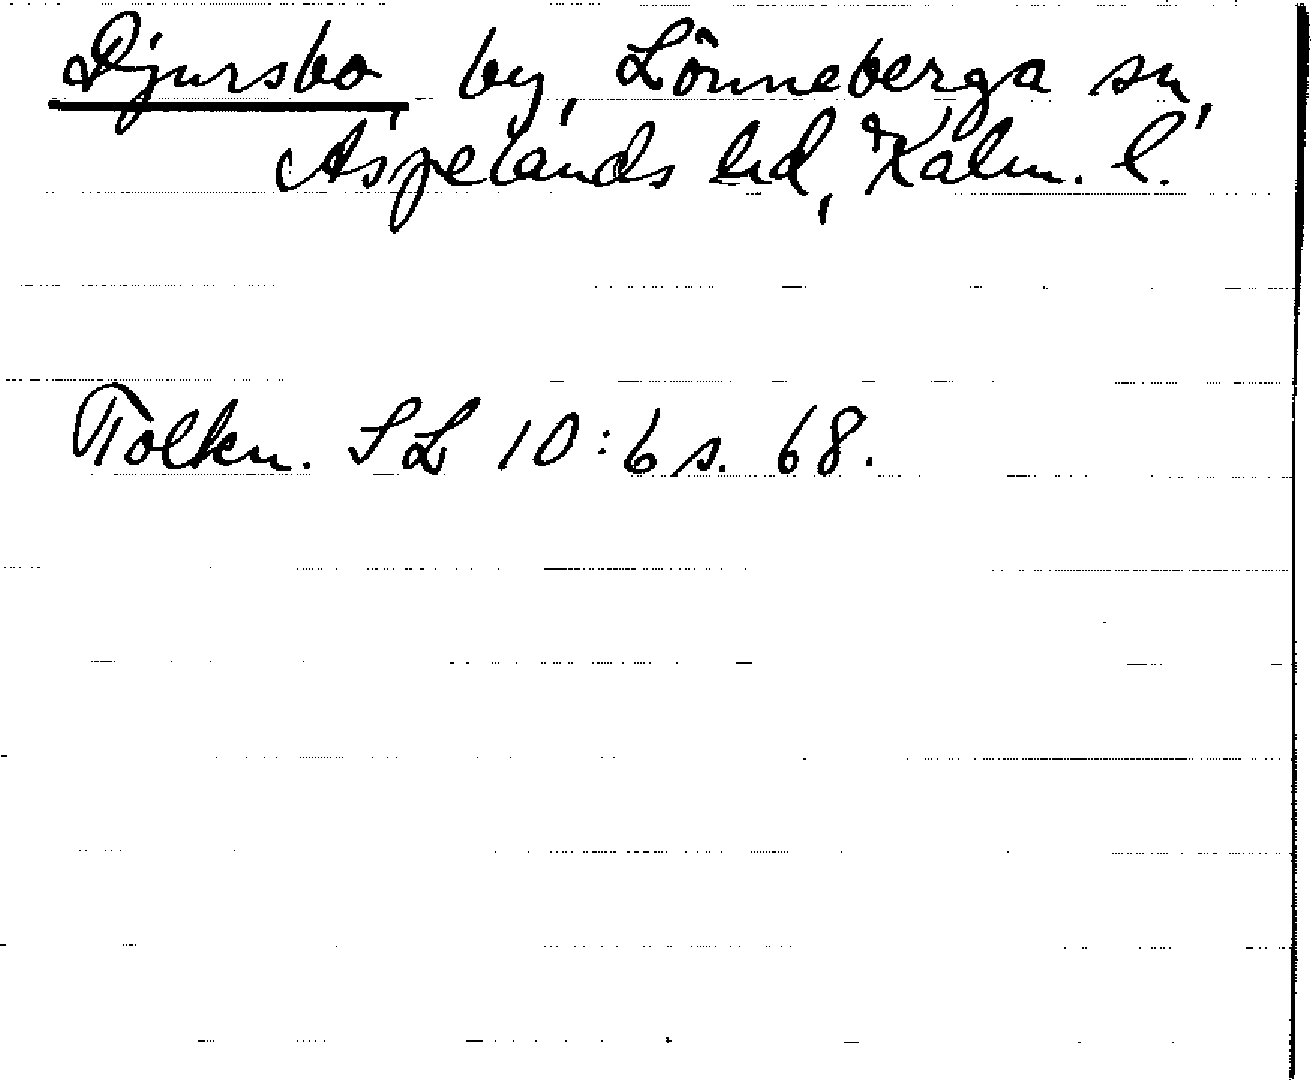 Djursbo by, Lönneberga sn,
Aspelands hd, Kalm. l.
Tolkn. SL 10:6 s. 68.